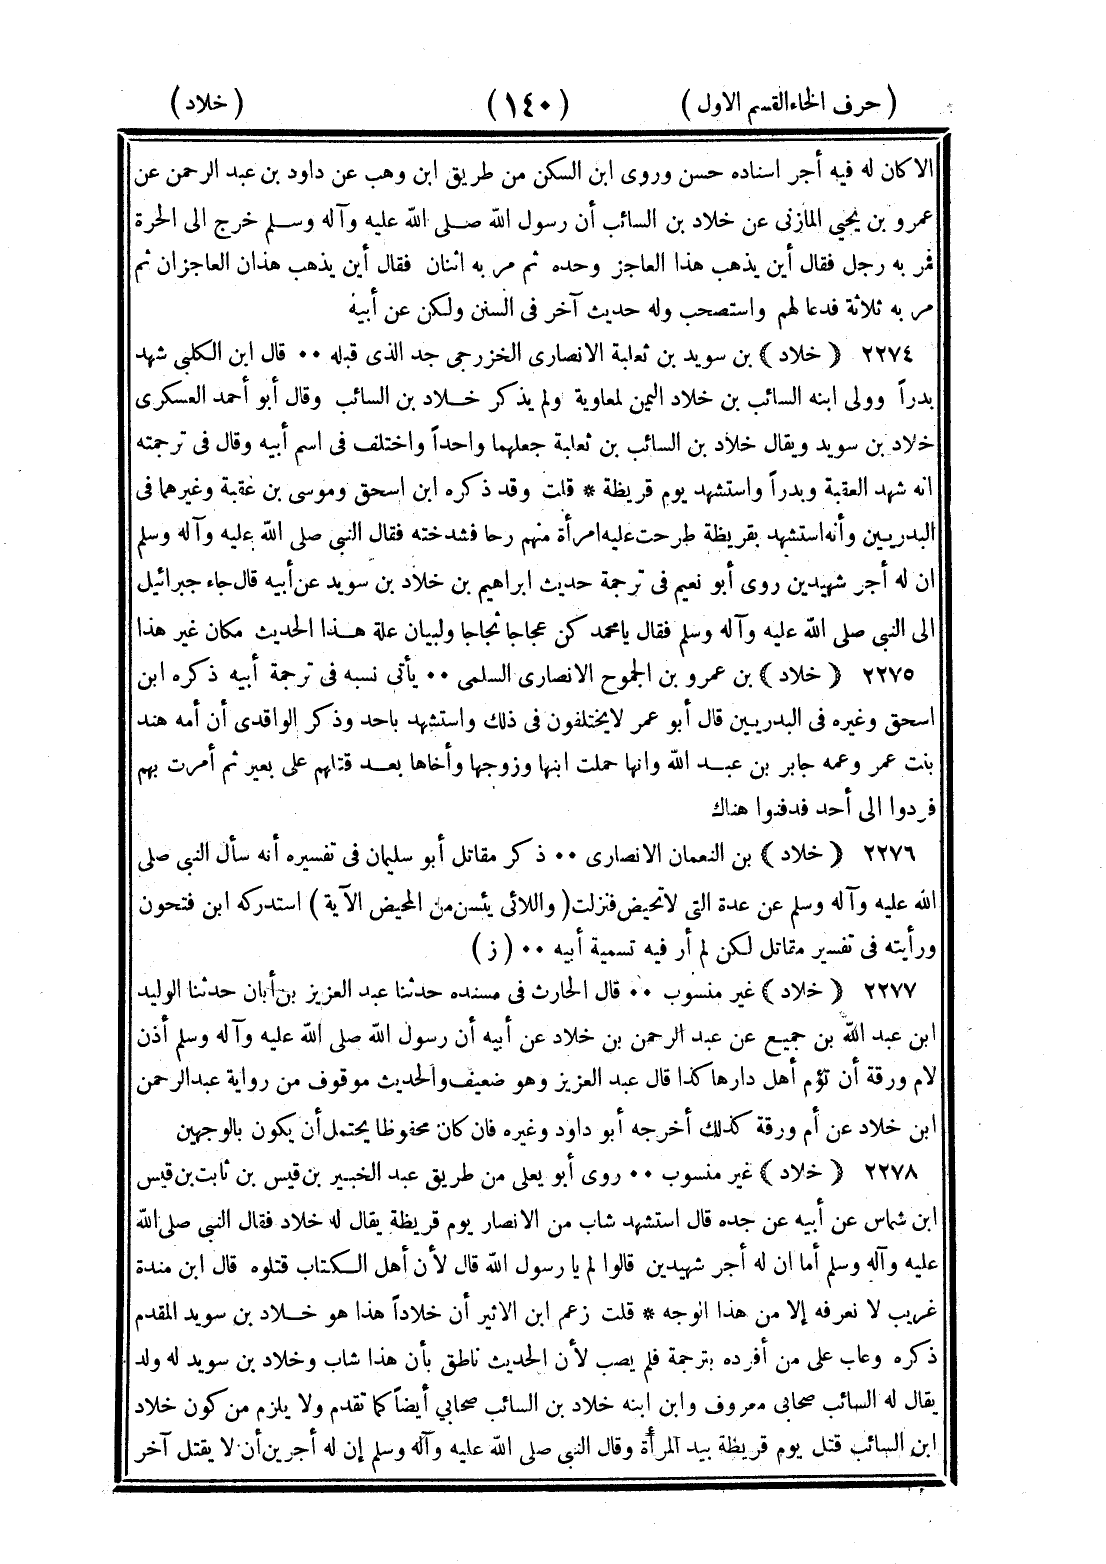 ( حرف الخاء القسم الاول ) ( ١٤٠ ) ( خلاد )
الا كان له فيه أجر اسناده حسن وروى ابن السكن من طريق ابن وهب عن داود بن عبد الرحمن عن
عمرو بن يحيي المازنى عن خلاد بن السائب أن رسول الله صلى الله عليه وآله وسلم خرج الى الحرة
فمر به رجل فقال أين يذهب هذا العاجز وحده ثم مر به اثنان فقال أين يذهب هذان العاجزان ثم
مر به ثلاثة فدعا لهم واستصحب وله حديث آخر فى السنن ولكن عن أبيه
٢٢٧٤ ( خلاد ) بن سويد بن ثعلبة الانصارى الخزرجى جد الذى قبله ٠٠ قال ابن الكلبي شهد
بدراً وولى ابنه السائب بن خلاد اليمن لمعاوية ولم يذكر خلاد بن السائب وقال أبو أحمد العسكرى
خلاد بن سويد ويقال خلاد بن السائب بن ثعلبة جعلهما واحداً واختلف فى اسم أبيه وقال فى ترجمته
انه شهد العقبة وبدراً واستشهد يوم قريظة * قلت وقد ذكره ابن اسحق وموسى بن عقبة وغيرهما فى
البدريين وأنه استشهد بقريظة طرحت عليه امرأة منهم رحا فشدخته فقال النبي صلى الله عليه وآله وسلم
ان له أجر شهيدين روى أبو نعيم فى ترجمة حديث ابراهيم بن خلاد بن سويد عن أبيه قال جاء جبرائيل
الى النبي صلى الله عليه وآله وسلم فقال يا محمد كن عجاجا ثجاجا ولبيان علة هذا الحديث مكان غير هذا
٢٢٧٥ ( خلاد ) بن عمرو بن الجموح الانصارى السلمى ٠٠ يأتى نسبه فى ترجمة أبيه ذكره ابن
اسحق وغيره فى البدريين قال أبو عمر لا يختلفون فى ذلك واستشهد باحد وذكر الواقدى أن أمه هند
بنت عمر وعمه جابر بن عبد الله وانها حملت ابنها وزوجها وأخاها بعد قتلهم على بعير ثم أمرت بهم
فردوا الى أحد فدفنوا هناك
٢٢٧٦ ( خلاد ) بن النعمان الانصارى ٠٠ ذكر مقاتل أبو سليمان فى تفسيره أنه سأل النبي صلى
الله عليه وآله وسلم عن عدة التى لا تحيض فنزلت ( واللائى يئسن من المحيض الآية ) استدركه ابن فتحون
ورأيته فى تفسير مقاتل لكن لم أر فيه تسمية أبيه ٠٠ ( ز )
٢٢٧٧ ( خلاد ) غير منسوب ٠٠ قال الحارث فى مسنده حدثنا عبد العزيز بن أبان حدثنا الوليد
ابن عبد الله بن جميع عن عبد الرحمن بن خلاد عن أبيه أن رسول الله صلى الله عليه وآله وسلم أذن
لام ورقة أن تؤم أهل دارها كذا قال عبد العزيز وهو ضعيف والحديث موقوف من رواية عبد الرحمن
ابن خلاد عن أم ورقة كذلك أخرجه أبو داود وغيره فان كان محفوظا يحتمل أن يكون بالوجهين
٢٢٧٨ ( خلاد ) غير منسوب ٠٠ روى أبو يعلى من طريق عبد الخبير بن قيس بن ثابت بن قيس
ابن شماس عن أبيه عن جده قال استشهد شاب من الانصار يوم قريظة يقال له خلاد فقال النبي صلى الله
عليه وآله وسلم أما ان له أجر شهيدين قالوا لم يا رسول الله قال لأن أهل الكتاب قتلوه قال ابن مندة
غريب لا نعرفه إلا من هذا الوجه * قلت زعم ابن الاثير أن خلاداً هذا هو خلاد بن سويد المقدم
ذكره وعاب على من أفرده بترجمة فلم يصب لأن الحديث ناطق بأن هذا شاب وخلاد بن سويد له ولد
يقال له السائب صحابى معروف وابن ابنه خلاد بن السائب صحابي أيضاً كما تقدم ولا يلزم من كون خلاد
ابن السائب قتل يوم قريظة بيد المرأة وقال النبى صلى الله عليه وآله وسلم إن له أجرين أن لا يقتل آخر